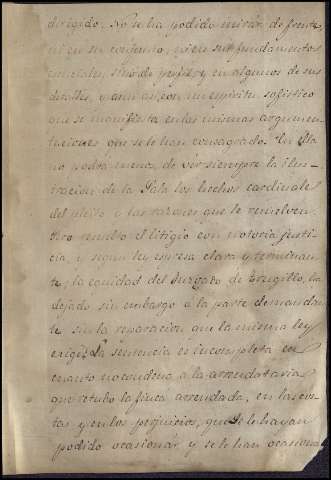 dirigido. No se ha podido mirár de frente
ni en su conjunto, ni en sus fundamentos
esenciales, sino de perfil, y en algunos de sus
detalles, y aun asi, con un espiritu sofistico
que se manifiesta en las mismas argumen-
taciones que se le han consagrado. En ella
no podrá menos de vér siempre la ilus-
tracion de la Sala los hechos cardinales
del pleito y las razones que lo resuelven
Pero resuelto el litigio con notoria justi-
cia, y segun ley espresa clara y terminan-
te, la equidad del Juzgado de Trugillo, ha
dejado sin embargo a la parte demandan-
te sin la reparacion que la misma ley
exige. La sentencia es incompleta en
cuanto no condena a la arrendataria
que retubo la finca arrendada, en las cos-
tas y en los perjuicios, que se le hayan
podido ocasionár y se le han ocasiona